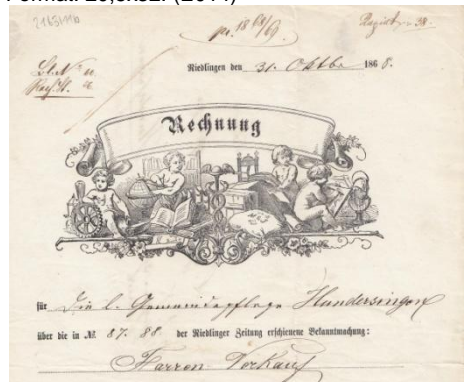 2163/116
pr. 18 68/69
Regist. 38.
Riedlingen den 31. Oktbr 1868.
Rechnung
für Die l. Gemeindepflege Hundersingen
über die in № 87. 88 der Riedlinger Zeitung erschienene Bekanntmachung:
Farren Verkauf